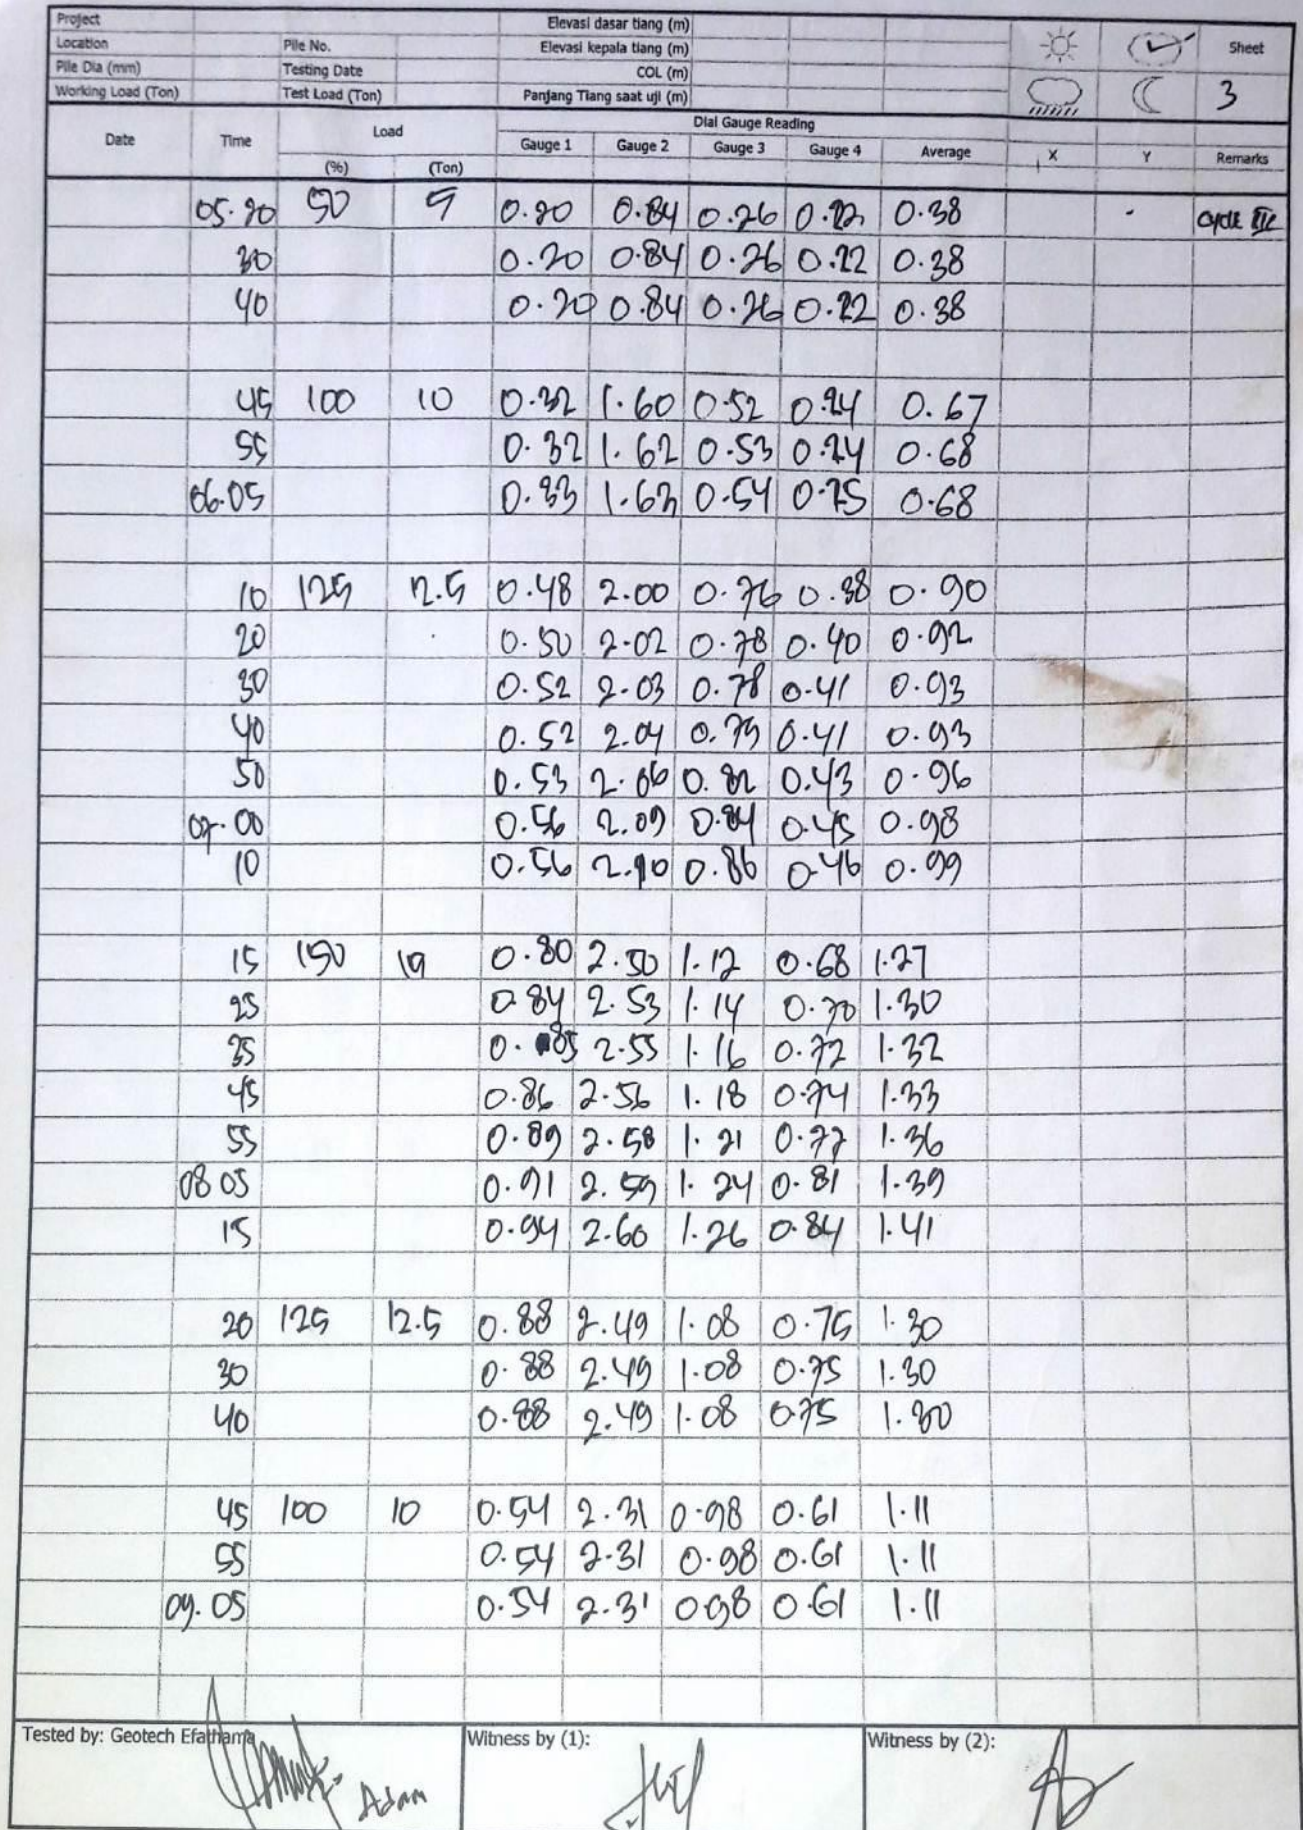 Project Elevasi dasar tiang (m)
Location Pile No. Elevasi kepala tiang (m) Sheet
Pile Dia (mm) Testing Date COL (m)
Working Load (Ton) Test Load (Ton) Panjang Tiang saat uji (m) 3
Date Time Load Dial Gauge Reading
Gauge 1 Gauge 2 Gauge 3 Gauge 4 Average X Y Remarks
(%) (Ton)
05.20 50 5 0.20 0.84 0.26 0.22 0.38 Cycle III
30 0.20 0.84 0.26 0.22 0.38
40 0.20 0.84 0.26 0.22 0.38
45 100 10 0.32 1.60 0.52 0.24 0.67
55 0.32 1.62 0.53 0.24 0.68
06.05 0.33 1.63 0.54 0.25 0.68
10 125 12.5 0.48 2.00 0.76 0.38 0.90
20 0.50 2.02 0.78 0.40 0.92
30 0.52 2.03 0.78 0.41 0.93
40 0.52 2.04 0.79 0.41 0.93
50 0.53 2.06 0.82 0.43 0.96
07.00 0.56 2.09 0.84 0.45 0.98
10 0.56 2.10 0.86 0.46 0.99
15 150 15 0.80 2.50 1.12 0.68 1.27
25 0.84 2.53 1.14 0.70 1.30
35 0.85 2.55 1.16 0.72 1.32
45 0.86 2.56 1.18 0.74 1.33
55 0.89 2.58 1.21 0.77 1.36
08 05 0.91 2.59 1.24 0.81 1.39
15 0.94 2.60 1.26 0.84 1.41
20 125 12.5 0.88 2.49 1.08 0.75 1.30
30 0.88 2.49 1.08 0.75 1.30
40 0.88 2.49 1.08 0.75 1.30
45 100 10 0.54 2.31 0.98 0.61 1.11
55 0.54 2.31 0.98 0.61 1.11
09.05 0.54 2.31 0.98 0.61 1.11
Tested by: Geotech Efathama Witness by (1): Witness by (2):
Adam